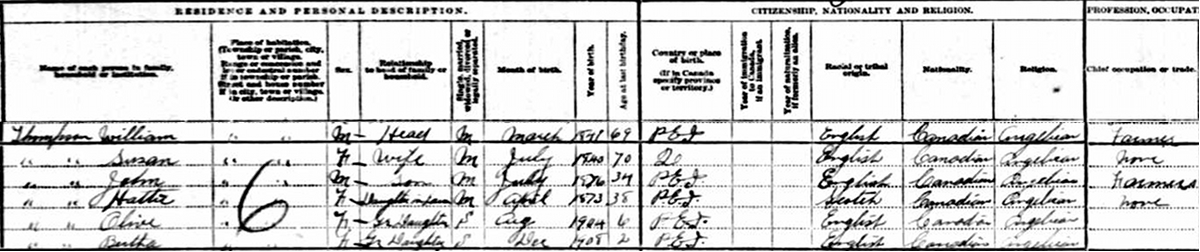 RESIDENCE AND PERSONAL DESCRIPTION. CITIZENSHIP, NATIONALITY AND RELIGION. PROFESSION, OCCUPAT
Name of each person in family, household or institution.
Place of habitation. (Township or parish, city, town or village. Range or concession and lot or cadastral number if in township or parish. Street and house number if in city, town or village. Or other description.)
Sex.
Relationship to head of family or household.
Single, married, widowed, divorced or legally separated.
Month of birth.
Year of birth.
Age at last birthday.
Country or place of birth. (If in Canada specify province or territory.)
Year of immigration to Canada, if an immigrant.
Year of naturalization, if formerly an alien.
Racial or tribal origin.
Nationality.
Religion.
Chief occupation or trade.
Thompson William " " M — Head M March 69 P.E.I English Canadian Anglican Farmer
" " Susan " " F — Wife M July 1840 70 English Canadian Anglican None
" " John " 6 " M — Son M July 1876 34 P.E.I English Canadian Anglican Farmer
" " Hattie " " F — Daughter in law M April 1873 38 P.E.I Scotch Canadian Anglican None
" " Olive " " F — Gr Daughter S Aug 1904 6 P.E.I English Canadian Anglican
" " Bertha " F Gr Daughter S Dec 1908 2 P.E.I. English Canadian Anglican